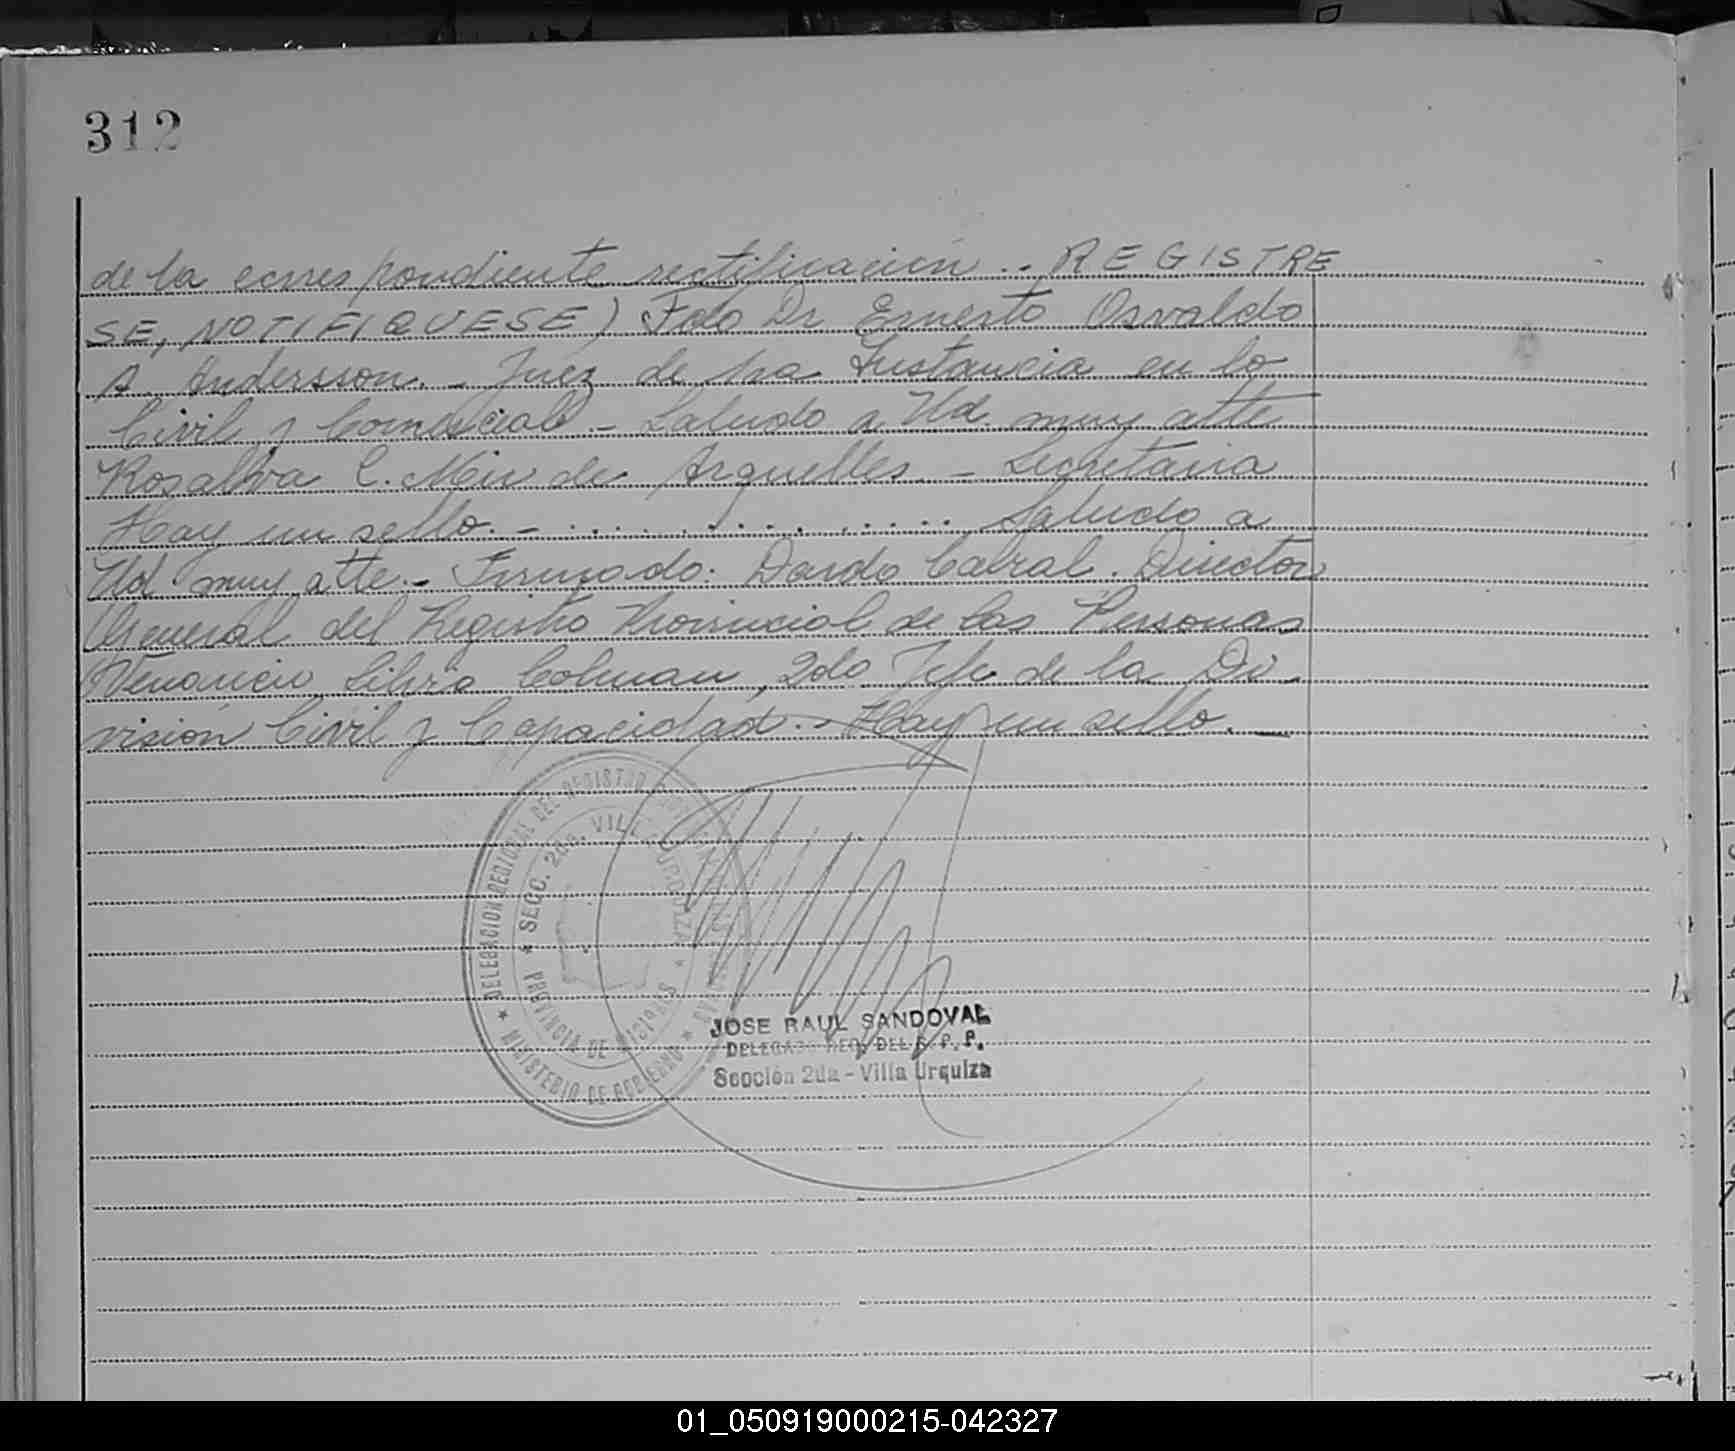 312
de la correspondiente rectificación.. REGISTRE
SE, NOTIFIQUESE) Fdo Dr Ernesto Osvaldo
A. Andersson. - Juez de 1ra Instancia en lo
Civil y Comercial. - Saludo a Ud. muy atte
Rosalba C. Meu de Arguelles - Secretaria
Hay un sello. - . . . . . . . . . . . . Saludo a
Ud muy atte. - Firmado: Dardo Cabral. Director
General del Registro Provincial de las Personas
Silvio Colman, 2do Jefe de la Di-
visión Civil y Capacidad. - Hay un sello. _
★ DELEGACION REGIONAL DEL REGISTRO
★ SECC. 2da. VILLA URQUIZA ★
PROVINCIA DE MISIONES
★ MINISTERIO DE GOBIERNO ★
JOSE RAUL SANDOVAL
DELEGADO REG. DEL R. P. P.
Sección 2da - Villa Urquiza
01_050919000215-042327